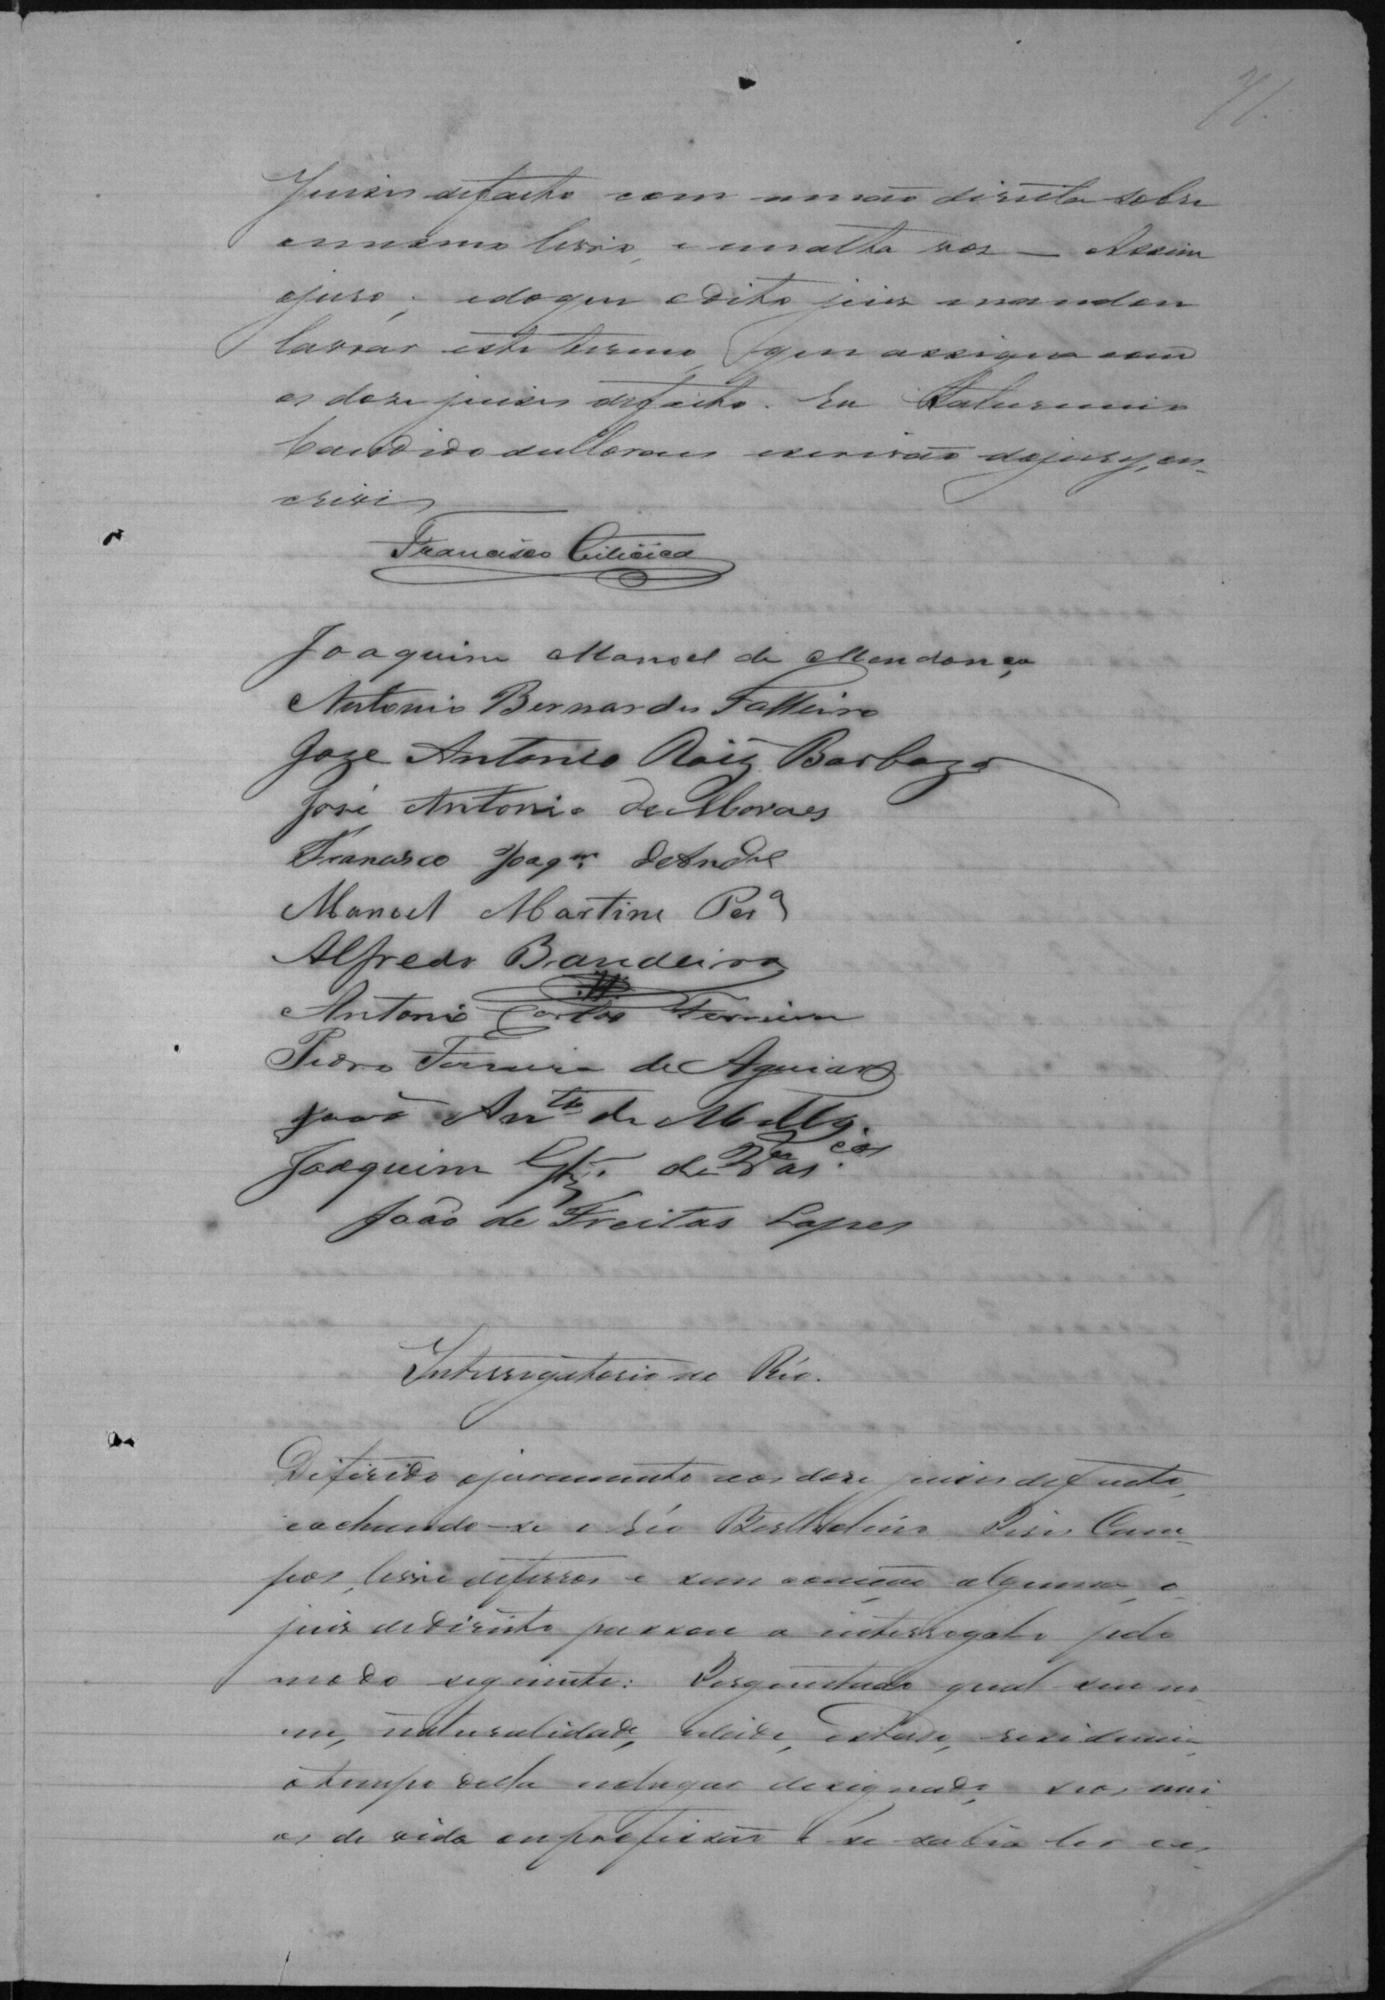 71.
Juizes defacto com amão direita sobre
omesmo livro, e em alta voz — Assim
ojuro; edoque o dito juiz mandou
lavrar este termo, que assigna com
os doze juizes defacto. Eu Saturnino
Candido de Moraes escrivão dojury, es-
crevi
Francisco
Joaquim Manoel de Mendonça
Antonio Bernardes Falleiro
Joze Antonio Roiz Barboza
José Antonio de Moraes
Francisco Joaqm de Andre
Manoel Martins Pera
Alfredo Bandeira
Antonio Carlos Ferreira
Pedro Ferreira de Aguiar
João Anto de
Joaquim de Vas.cos
João de Freitas Lopes
Interrogatorio ao Réo.
Deferido ojuramento aos doze juizes defacto,
eachando-se o réo Bertholino Pires Cam-
pos, livre deferros e sem coacção alguma, o
juiz dedireito passou a interrogalo pelo
modo seguinte: Perguntado qual seu no-
me, naturalidade, idade, estado, residencia,
otempo della nolugar designado, seos mei-
os de vida ouprofissão e se sabia ler e es-